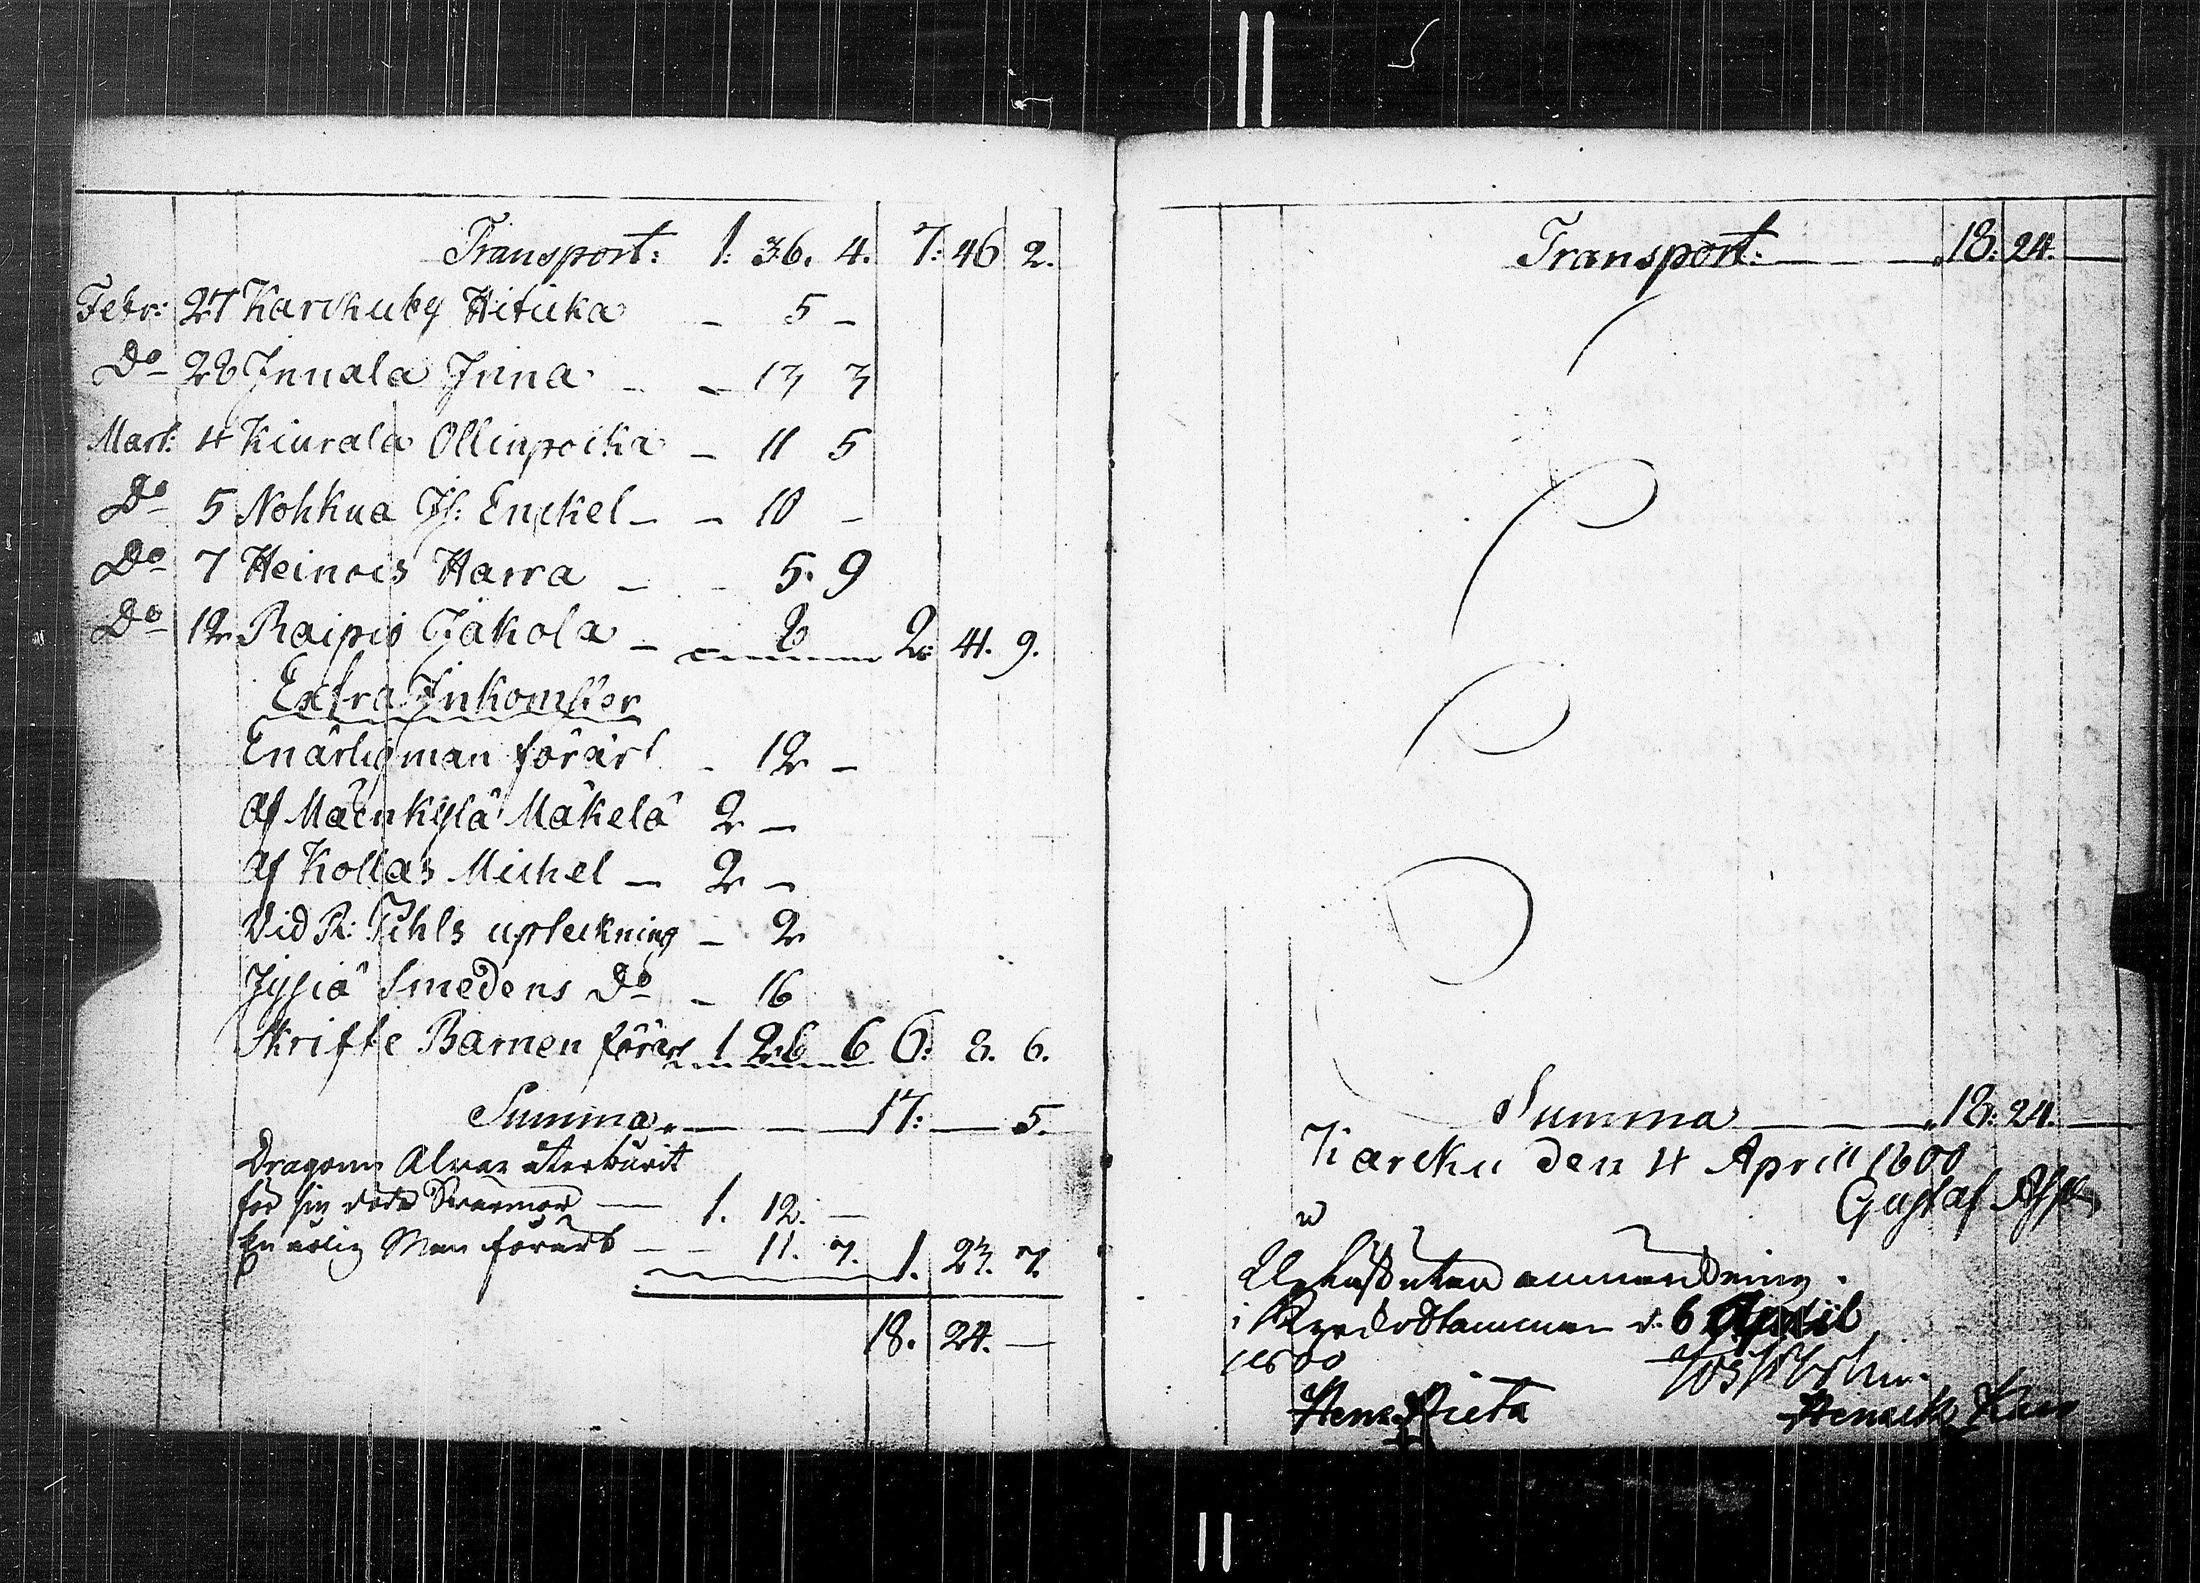 Transport: 1: 36. 4. 7: 46 2.
Febr: 27 Karckuby Hituka - 5 -
Do 28 Innala Inna - - 13 3
Mart: 4 Kiurala Ollinpoika - 11 5
Do 5 Nohkua Js: Enckel - - 10 -
Do 7 Heinois Harra - - 5. 9
Do 12 Raipio Jakola - 8 2: 41. 9.
Extra Inkomster
En ärlig man förärt - 12 -
Af Mäenkylä Mäkelä 2 -
Af Kollas Michel - 2 -
Vid R: Pihls upteckning - 2
Jysiä Smedens Do - 16
Skrifte Barnen förärt 1 26 6 6: 8. 6.
Summa - - 17: - 5.
Dragoun Alvar återburit
för sin döda Svärmor - 1. 12. -
En ärlig Man förärt - - 11. 7. 1. 23. 7.
18. 24. -
Transport: - - 18: 24. -
Summa - - 18: 24. -
Karcku den 4 April 1800
Gustaf
utan anmärckning.
i d: 6 April
1800
Henrick